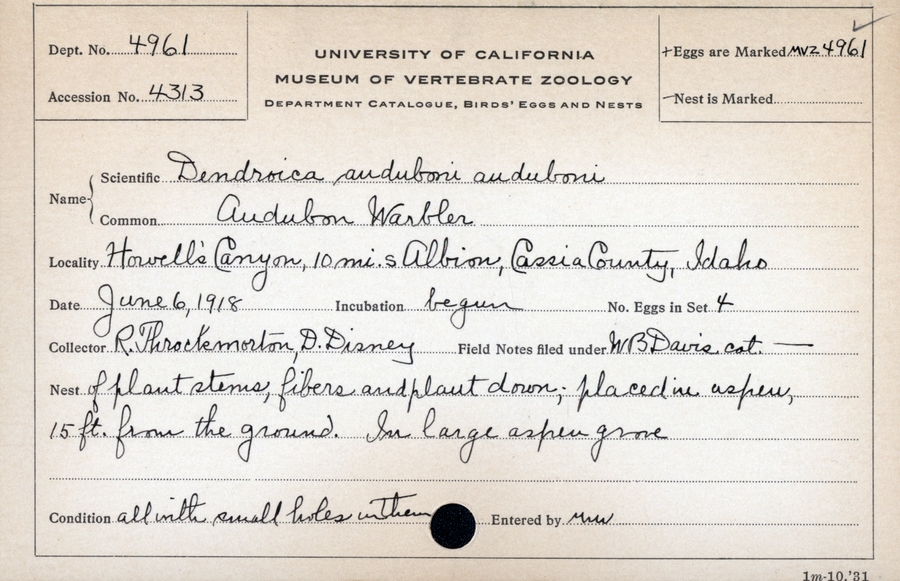 Dept. No. 4961
Accession No. 4313
UNIVERSITY OF CALIFORNIA
MUSEUM OF VERTEBRATE ZOOLOGY
DEPARTMENT CATALOGUE, BIRDS' EGGS AND NESTS
+Eggs are Marked MVZ 4961
—Nest is Marked
Name
Scientific Dendroica auduboni auduboni
Common Audubon Warbler
Locality Howell's Canyon, 10 mi. s Albion, Cassia County, Idaho
Date June 6, 1918 Incubation begun No. Eggs in Set 4
Collector R. Throckmorton, D. Disney Field Notes filed under W B Davis cat. —
Nest of plant stems, fibers and plant down; placed in aspen,
15 ft. from the ground. In large aspen grove
Condition all with small holes in them Entered by mw
1m-10,'31